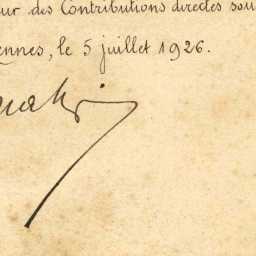 ur des Contributions directes sou
ennes, le 5 juillet 1926.